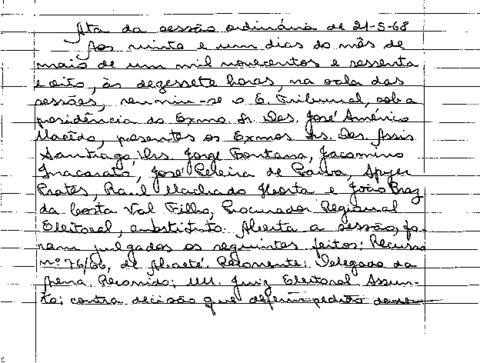 Ata da sessão ordinária de 21-5-68
Aos vinte e um dias do mês de
maio de um mil novecentos e sessenta
e oito, às degessete horas, na sala das
sessões, reuniu-se o E. Tribunal, sob a
presidência do Exmo. Sr. Des. José Américo
Macêdo, presentes os Exmos. Srs. Des. Assis
Santiago, Drs. Jorge Fontana, Jacomino
Inacarato, José Pereira de Paiva, Spyer
Prates, Raul Machado Horta e João Braz
da Costa Val Filho, Procurador Regional
Eleitoral, substituto. Aberta a sessão, fo-
ram julgados os seguintes feitos: Recurso
nº 76/66, de Abaeté. Recorrente: Delegado da
Arena. Recorrido: MM. Juiz Eleitoral. Assun-
to: contra decisão que deferiu pedido